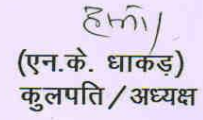 (एन.के. धाकड़)
कुलपति / अध्यक्ष